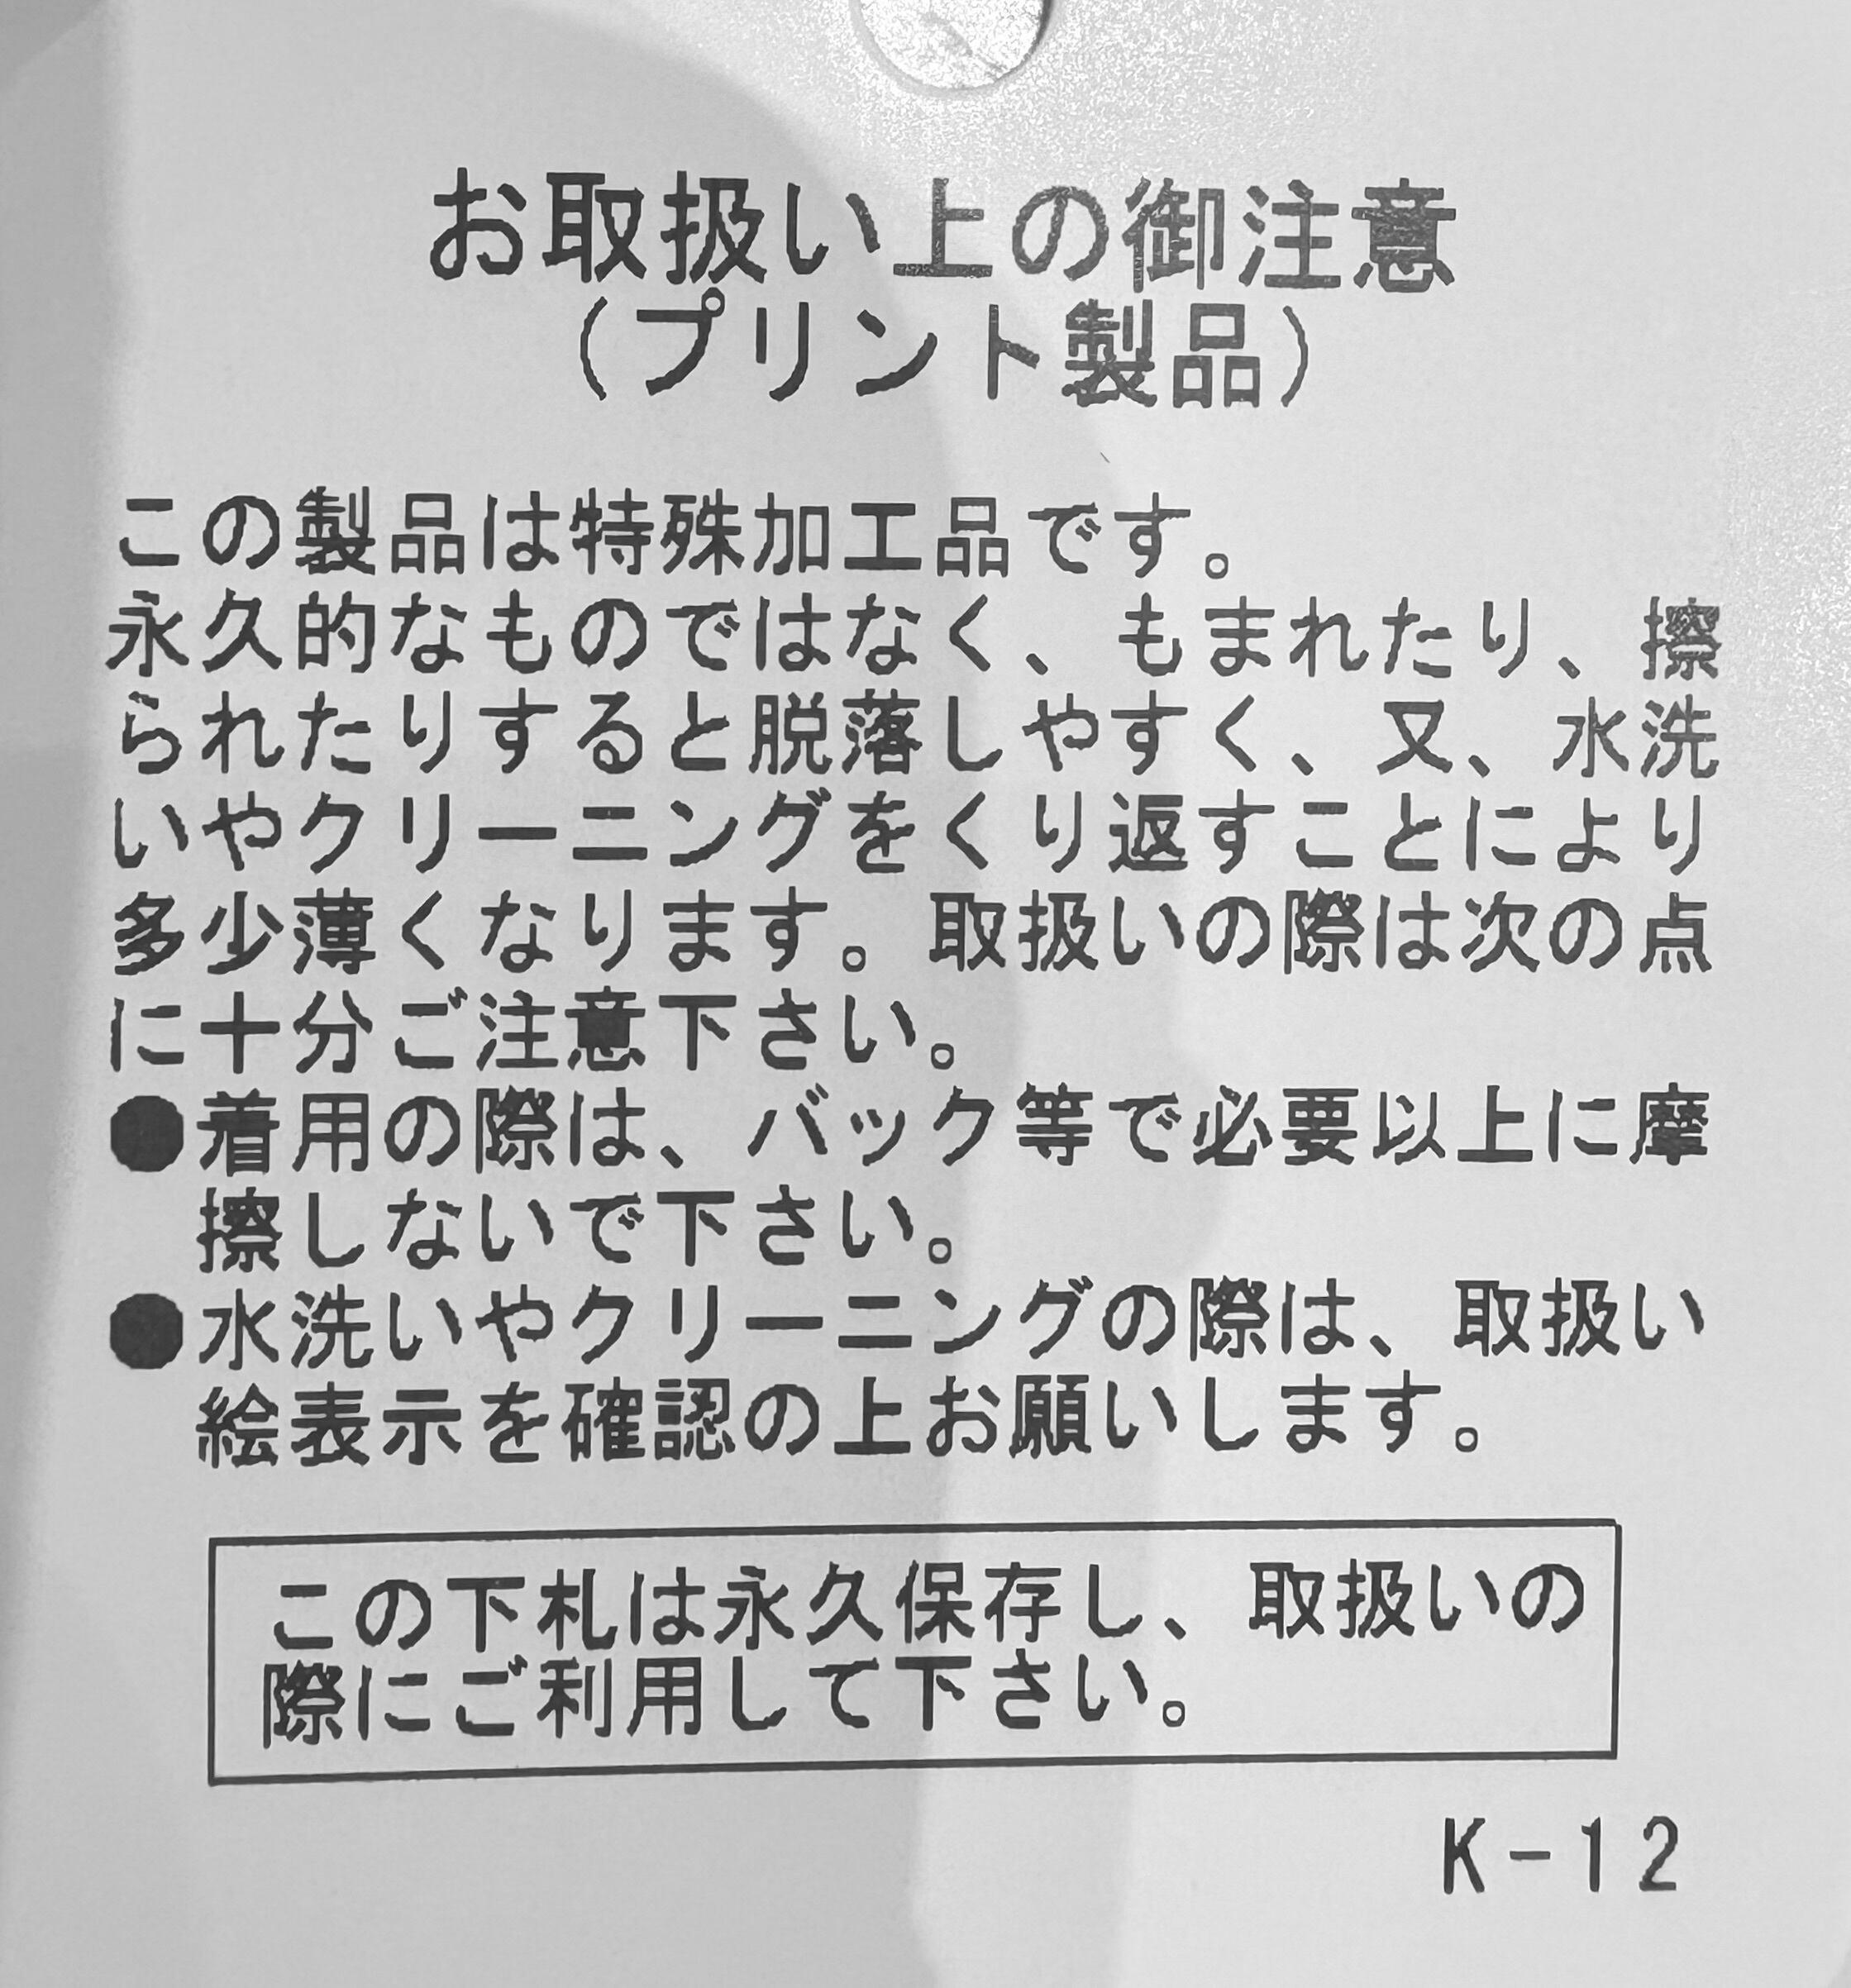 お取扱い上の御注意
(プリント製品)
この製品は特殊加工品です。
永久的なものではなく、もまれたり、擦
られたりすると脱落しやすく、又、水洗
いやクリーニングをくり返すことにより
多少薄くなります。取扱いの際は次の点
に十分ご注意下さい。
●着用の際は、バック等で必要以上に摩
擦しないで下さい。
●水洗いやクリーニングの際は、取扱い
絵表示を確認の上お願いします。
この下札は永久保存し、取扱いの
際にご利用して下さい。
K-12